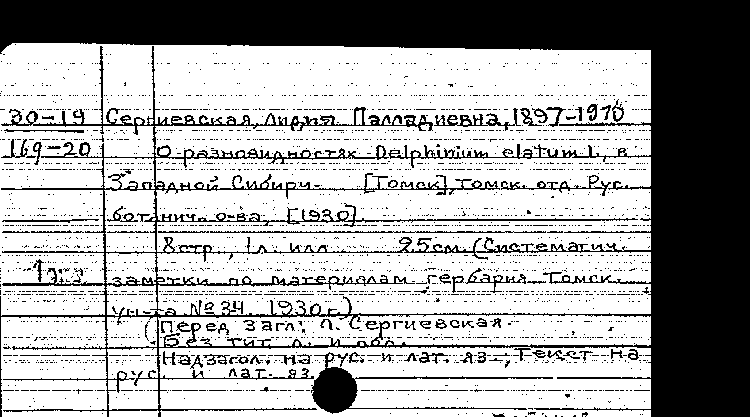 30-19 Сергиевская, Лидия Палладиевна, 1897-1970
169-20 О разновидностях Delphinium elatum L, в
Западной Сибири. [Томск], Томск. отд. Рус.
ботанич. о-ва, [1930].
8 стр., 1 л. илл. 25 см. (Систематич.
1 экз. заметки по материалам гербария Томск.
ун-та № 34. 1930 г.)
Перед загл: Л. Сергиевская.
Без тит. л. и обл.
Надзагол. на рус. и лат. яз., Текст на
рус. и лат. яз.